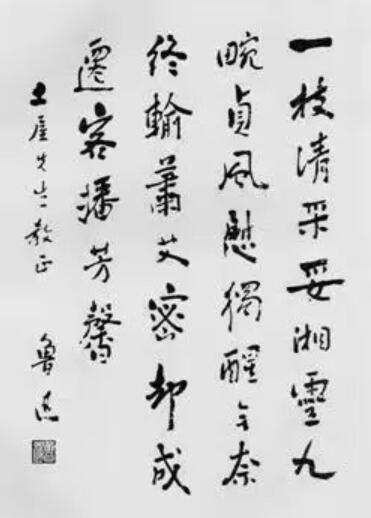 一枝清采妥湘靈九
畹貞風慰獨醒無奈
終輸蕭艾密却成
遷客播芳馨
土屋先生教正
魯迅